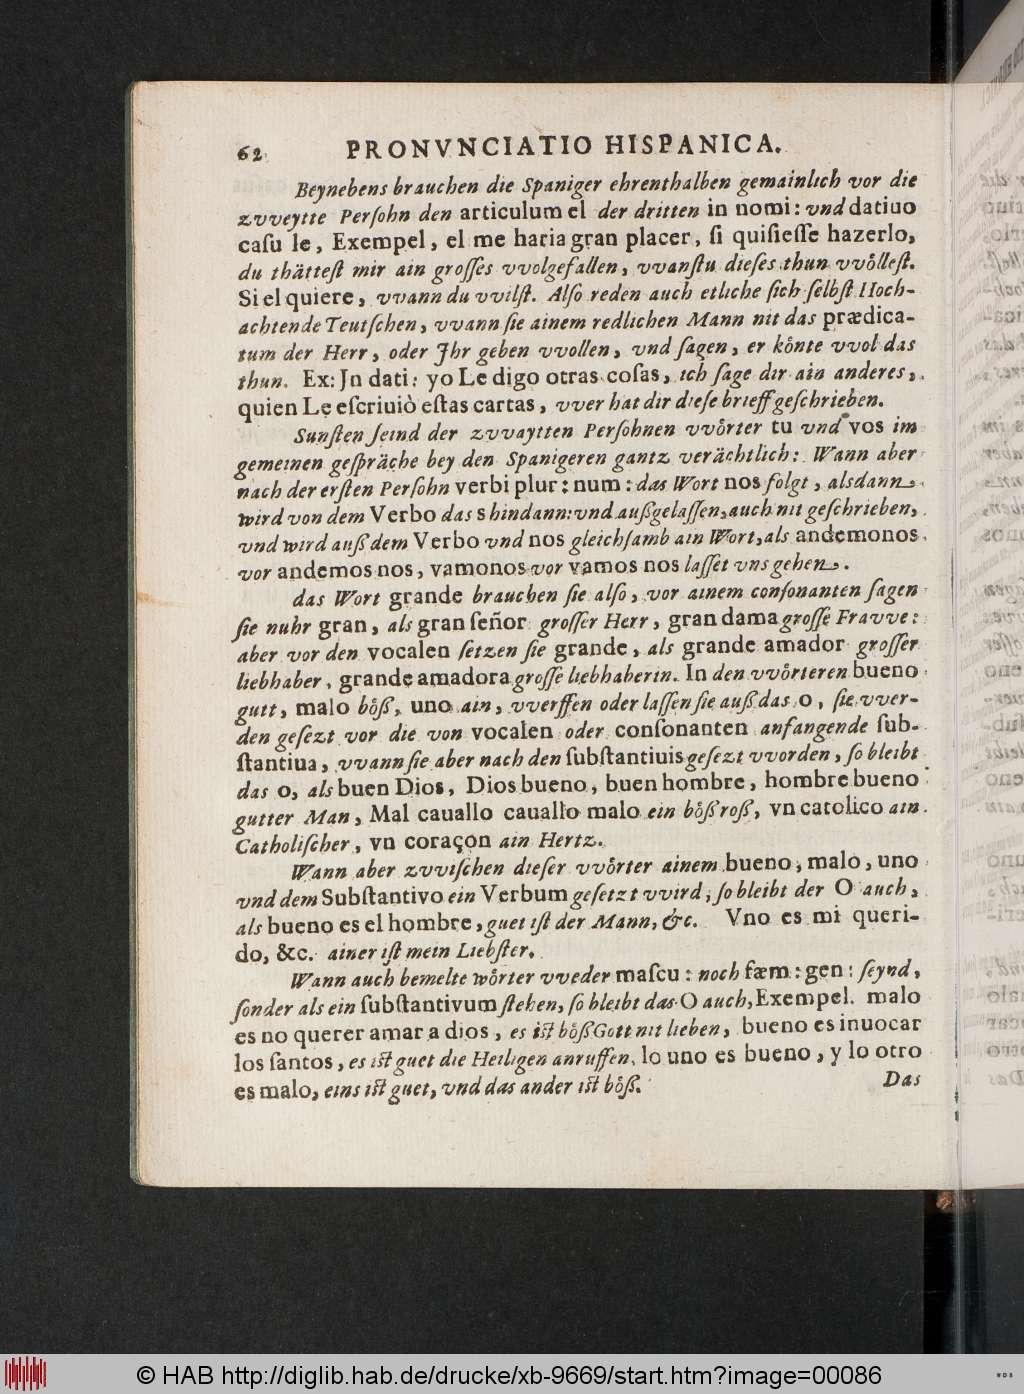 62 PRONVNCIATIO HISPANICA.
Beynebens brauchen die Spaniger ehrenthalben gemainlich vor die
zvveytte Perſohn den articulum el der dritten in nomi: vnd datiuo
caſu le, Exempel, el me haria gran placer, ſi quiſieſſe hazerlo,
du thätteſt mir ain groſſes vvolgefallen, vvanſtu dieſes thun vvölleſt.
Si el quiere, vvann du vvilſt. Alſo reden auch etliche ſich ſelbſt Hoch-
achtende Teutſchen, vvann ſie ainem redlichen Mann nit das prædica-
tum der Herr, oder Jhr geben vvollen, vnd ſagen, er könte vvol das
thun. Ex: Jn dati: yo Le digo otras coſas, ich ſage dir ain anderes,
quien Le eſcriuiò eſtas cartas, vver hat dir dieſe brieff geſchrieben.
Sunſten ſeind der zvvaytten Perſohnen vvörter tu vnd vos im
gemeinen geſpräche bey den Spanigeren gantz verächtlich: Wann aber
nach der erſten Perſohn verbi plur: num: das Wort nos folgt, alsdann
wird von dem Verbo das s hindann: vnd außgelaſſen, auch nit geſchrieben,
vnd wird auß dem Verbo vnd nos gleichſamb ain Wort, als andemonos
vor andemos nos, vamonos vor vamos nos laſſet vns gehen.
das Wort grande brauchen ſie alſo, vor ainem conſonanten ſagen
ſie nuhr gran, als gran ſeñor groſſer Herr, gran dama groſſe Fravve:
aber vor den vocalen ſetzen ſie grande, als grande amador groſſer
liebhaber, grande amadora groſſe liebhaberin. In den vvörteren bueno
gutt, malo böß, uno ain, vverffen oder laſſen ſie auß das o, ſie vver-
den geſezt vor die von vocalen oder conſonanten anfangende ſub-
ſtantiua, vvann ſie aber nach den ſubſtantiuis geſezt vvorden, ſo bleibt
das o, als buen Dios, Dios bueno, buen hombre, hombre bueno
gutter Man, Mal cauallo cauallo malo ein böß roß, vn catolico ain
Catholiſcher, vn coraçon ain Hertz.
Wann aber zvviſchen dieſer vvörter ainem bueno, malo, uno
vnd dem Subſtantivo ein Verbum geſetzt vvird, ſo bleibt der O auch,
als bueno es el hombre, guet iſt der Mann, &c. Vno es mi queri-
do, &c. ainer iſt mein Liebſter.
Wann auch bemelte wörter vveder maſcu: noch fæm: gen: ſeynd,
ſonder als ein ſubſtantivum ſtehen, ſo bleibt das O auch, Exempel. malo
es no querer amar a dios, es iſt böß Gott nit lieben, bueno es inuocar
los ſantos, es iſt guet die Heiligen anruffen, lo uno es bueno, y lo otro
es malo, eins iſt guet, vnd das ander iſt böß.
Das
© HAB http://diglib.hab.de/drucke/xb-9669/start.htm?image=00086